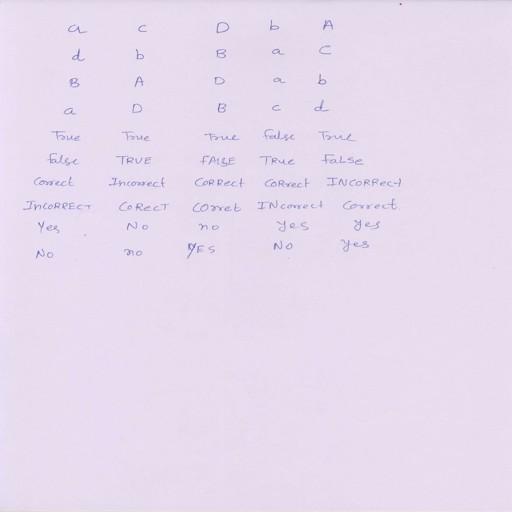 a c D b A
d b B a C
B A D a b
a D B c d
True True True false True
false TRUE FALSE TRUe FaLSe
Correct Incorrect CoRRect CoRrect INCoRRect
InCoRRECT CoRecT COrret INcorrect Correct.
Yes No no yes yes
No no YES No yes